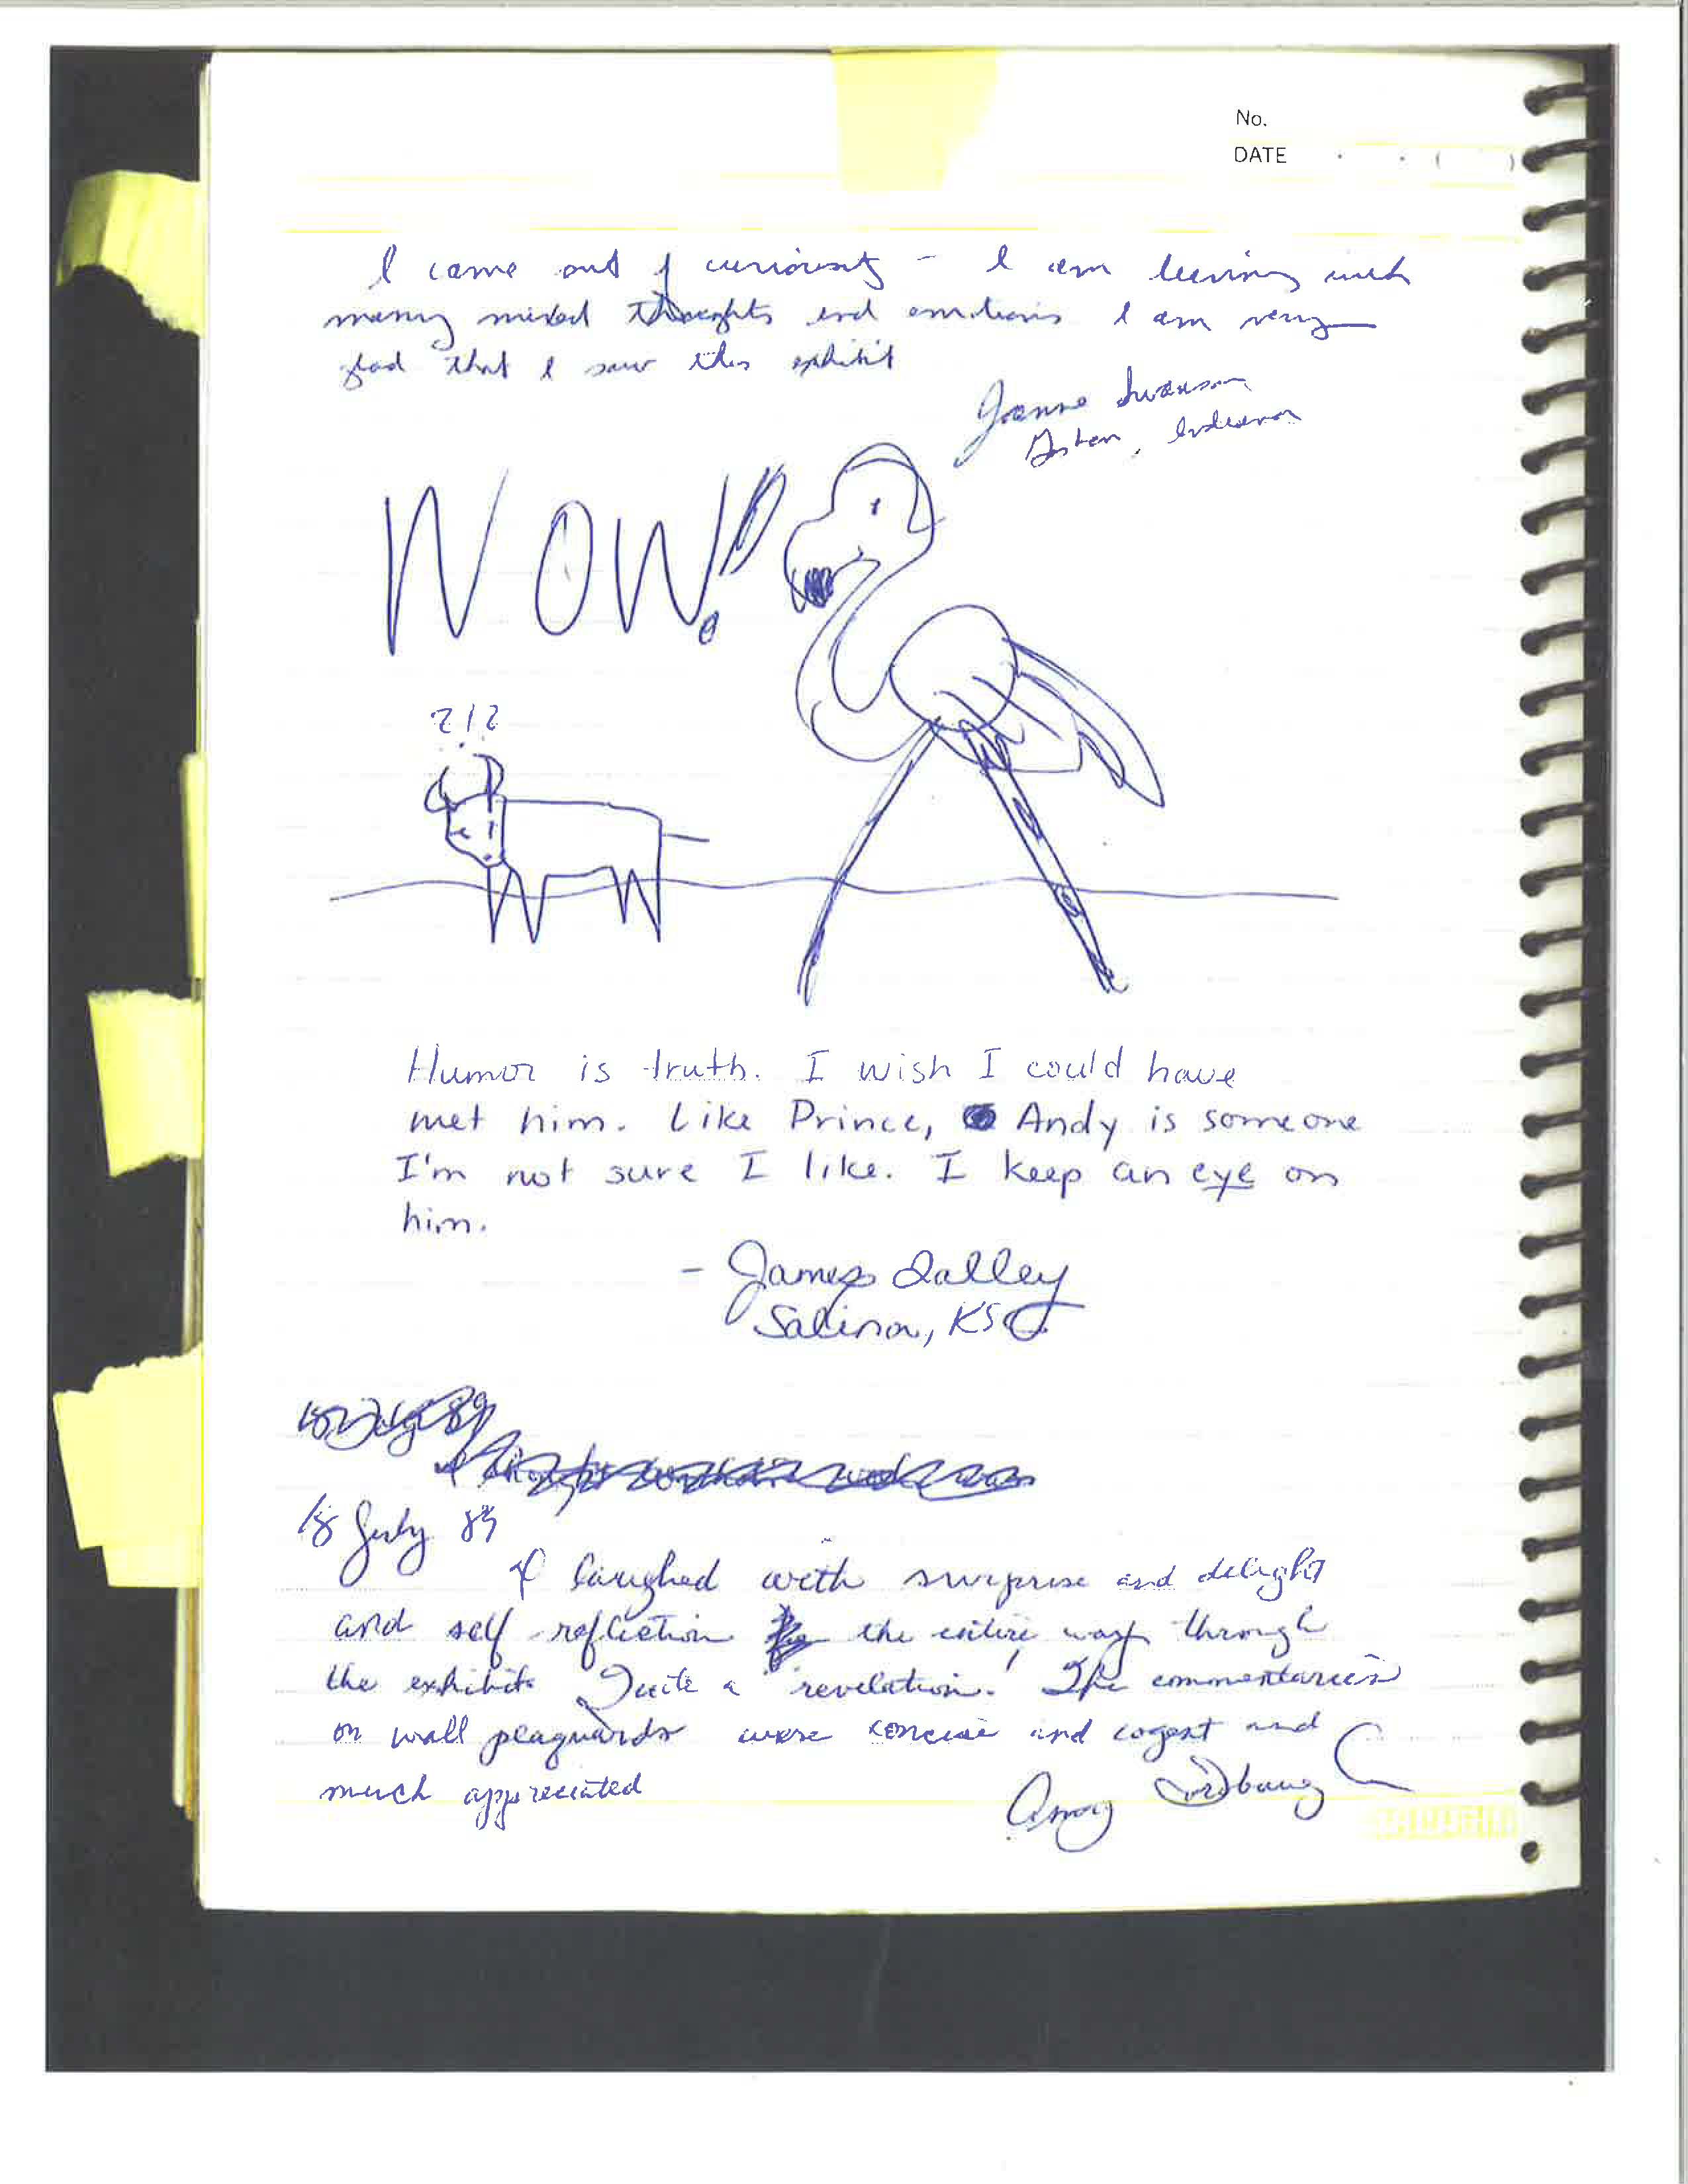 No.
DATE . . ( )
I came out of curiousity - I am leaving with
many mixed thoughts and emotions I am very
glad that I saw this exhibit
Joanne Swanson
Goshen, Indiana
WOW!
? ! ?
Humor is truth. I wish I could have
met him. Like Prince, Andy is someone
I'm not sure I like. I keep an eye on
him.
- James Lalley
Salina, KS
18 July 89
I laughed with surprise and delight
and self-reflection the entire way through
the exhibit. Quite a revelation! The commentaries
on wall plaquards were concise and cogent and
much appreciated
Amy